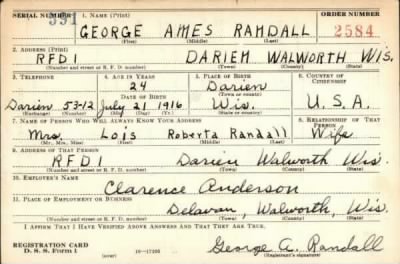 SERIAL NUMBER 1. NAME (Print) ORDER NUMBER
331 GEORGE AMES RANDALL 2584
(First) (Middle) (Last)
2. ADDRESS (Print)
RFD1 DARIEN WALWORTH WIS.
(Number and street or R. F. D. number) (Town) (County) (State)
3. TELEPHONE 4. AGE IN YEARS 5. PLACE OF BIRTH 6. COUNTRY OF CITIZENSHIP
24 Darien
DATE OF BIRTH (Town or county)
Darien 53-12 July 21 1916 Wis. U.S.A.
(Exchange) (Number) (Mo.) (Day) (Yr.) (State or country)
7. NAME OF PERSON WHO WILL ALWAYS KNOW YOUR ADDRESS 8. RELATIONSHIP OF THAT PERSON
Mrs. Lois Roberta Randall Wife
(Mr., Mrs., Miss) (First) (Middle) (Last)
9. ADDRESS OF THAT PERSON
RFD1 Darien Walworth Wis.
(Number and street or R. F. D. number) (Town) (County) (State)
10. EMPLOYER'S NAME
Clarence Anderson
11. PLACE OF EMPLOYMENT OR BUSINESS
Delavan, Walworth, Wis.
(Number and street or R. F. D. number) (Town) (County) (State)
I AFFIRM THAT I HAVE VERIFIED ABOVE ANSWERS AND THAT THEY ARE TRUE.
REGISTRATION CARD George A. Randall
D. S. S. Form 1 (over) (Registrant's signature)